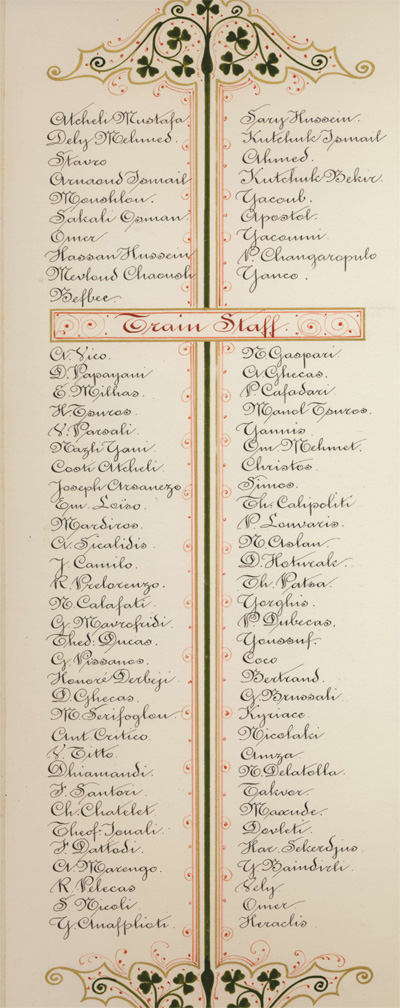 Atcheli Mustafa.
Dely Mehmed.
Stavro
Arnaoud Ismail
Moushlou.
Sakali Osman.
Omer
Hassan Hussein
Mevloud Chaoush
Befbee.
Sary Hussein.
Kutchuk Ismail
Ahmed.
Kutchuk Bekir.
Yacoub.
Apostol.
Yacoumi.
P. Changaropulo
Yanco.
Train Staff.
A. Vico.
D. Papayani
E. Milhas.
H. Tsuros.
V. Parsali.
Nazli Yani.
Costi Atcheli.
Joseph Arsanezo
Em. Loïso.
Mardiros.
A. Sicalidis.
J. Camilo.
R. Prelorenzo.
N. Calafati.
G. Mavrofridi.
Thed. Ducas.
G. Pissanos.
Honoré Derbeji
D. Ghecas.
M. Serifoglou.
Ant. Critico.
V. Titto.
Dhiamandi.
F. Santori.
Ch. Chatelet.
Theof. Jouali.
F. Dattodi.
A. Marengo.
R. Pelecas
S. Nicoli
Y. Anafplioti.
N. Gaspari.
A. Ghecas.
P. Cafadari
Manol Tsuros.
Yannis
Om. Mehmet.
Christos
Simos.
Th. Calipoliti
P. Louvaris.
N. Aslan.
D. Hoturak.
Th. Patsa.
Yorghis.
P. Dubecas.
Youssuf.
Coco
Bertrand.
G. Brussali
Kyriaco.
Nicolaki
Amza
N. Delatolla.
Takvor.
Maxude.
Dovleti.
Har. Sekerdjus
Y. Baindirli.
Vely
Omer
Heraclis.